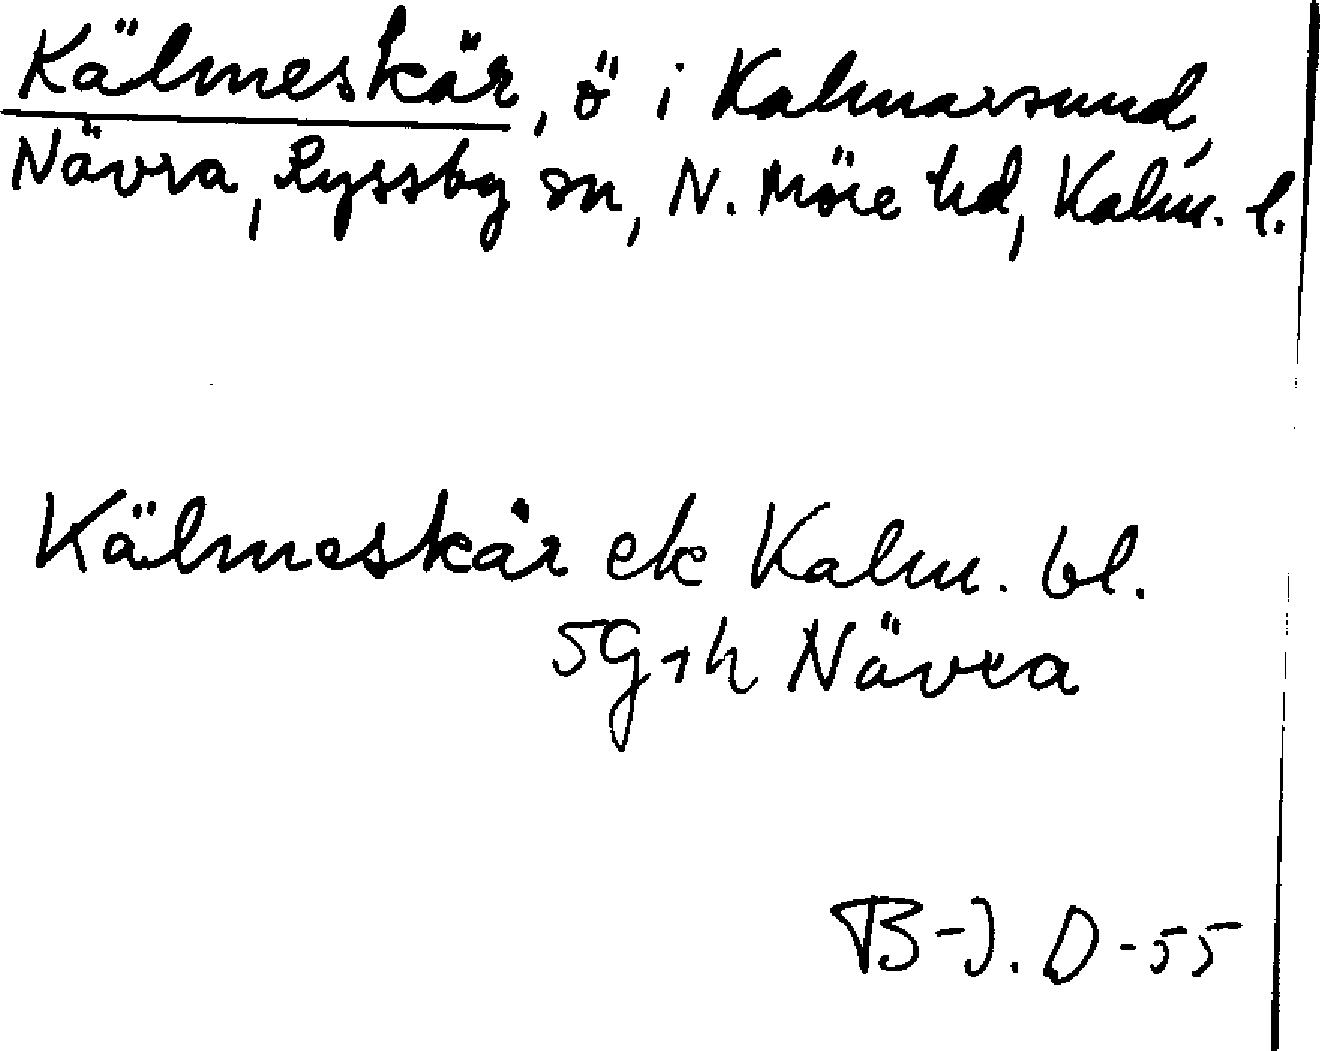 Kälmeskär, ö i Kalmarsund,
Nävra, Ryssby sn, N. Möre hd, Kalm. l.
Kälmeskär ek Kalm. bl.
5G1h Nävra
B-J. D-55